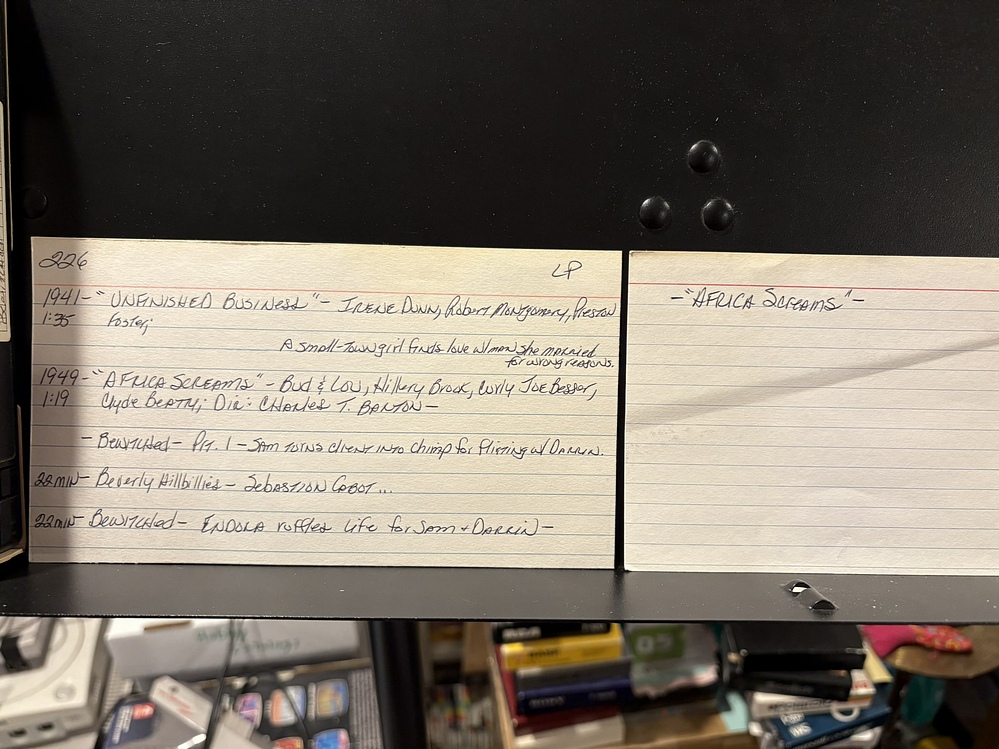 226
LP
1941 - "UNFINISHED BUSINESS" - IRENE DUNN, Robert Montgomery, PRESTON
1:35 Foster;
A small-town girl finds love w/ man she married
for wrong reasons.
1949 - "AFRICA SCREAMS" - Bud & Lou, Hillery Brock, Curly Joe Besser,
1:19 Clyde BEATTY; Dir: CHARLES T. BARTON -
- Bewitched - Pt. 1 - SAM TURNS client into chimp for flirting w/ DARRIN.
22 min - Beverly Hillbillies - SEBASTION CABOT ...
22 min - Bewitched - ENDORA ruffles life for SAM + DARRIN -
- "AFRICA SCREAMS" -
RCA